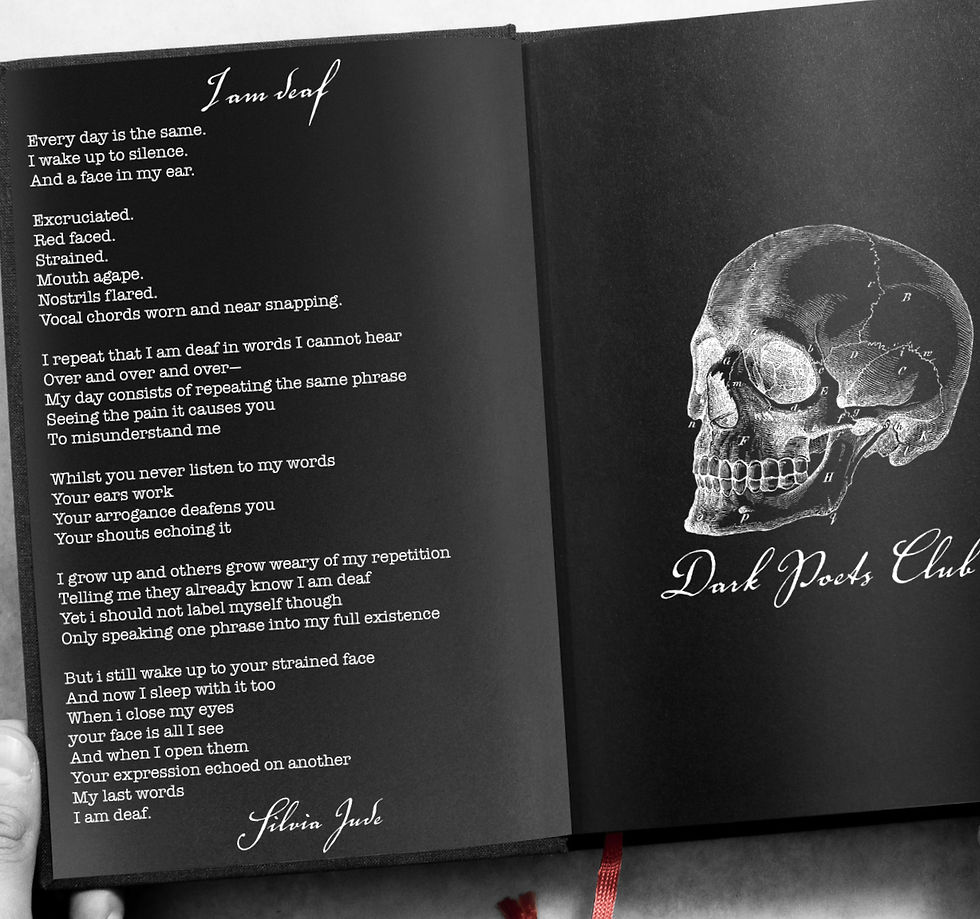 I am deaf
Every day is the same.
I wake up to silence.
And a face in my ear.
Excruciated.
Red faced.
Strained.
Mouth agape.
Nostrils flared.
Vocal chords worn and near snapping.
I repeat that I am deaf in words I cannot hear
Over and over and over—
My day consists of repeating the same phrase
Seeing the pain it causes you
To misunderstand me
Whilst you never listen to my words
Your ears work
Your arrogance deafens you
Your shouts echoing it
I grow up and others grow weary of my repetition
Telling me they already know I am deaf
Yet i should not label myself though
Only speaking one phrase into my full existence
But i still wake up to your strained face
And now I sleep with it too
When i close my eyes
your face is all I see
And when I open them
Your expression echoed on another
My last words
I am deaf.
Silvia Jude
A
B
D
C
E
F
H
Dark Poets Club